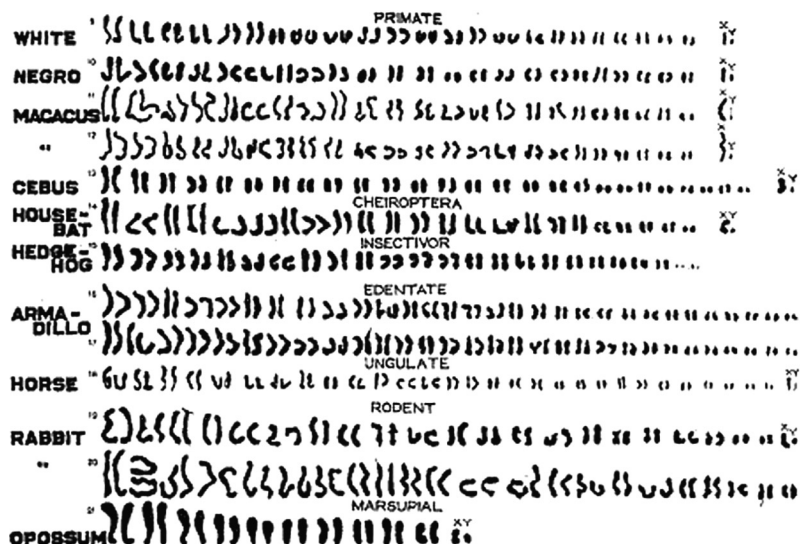 PRIMATE
WHITE 9 X Y
NEGRO 10 X Y
MACACUS 11 X Y
" 12 X Y
CEBUS 13 X Y
CHEIROPTERA
HOUSE-BAT 14 X Y
INSECTIVOR
HEDGE-HOG 15
EDENTATE
ARMA-DILLO 16
17
UNGULATE
HORSE 18 X Y
RODENT
RABBIT 19 X Y
" 20
MARSUPIAL
OPOSSUM 21 X Y